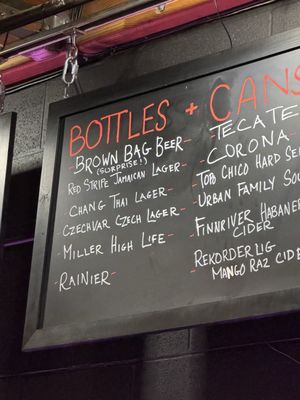 BOTTLES + CANS
BROWN BAG BEER
(SURPRISE!)
RED STRIPE JAMAICAN LAGER
CHANG THAI LAGER
CZECHVAR CZECH LAGER
MILLER HIGH LIFE
RAINIER
TECATE
CORONA
TOPO CHICO HARD SE
URBAN FAMILY SOU
FINNRIVER HABANER
CIDER
REKORDERLIG
MANGO RAZ CIDE